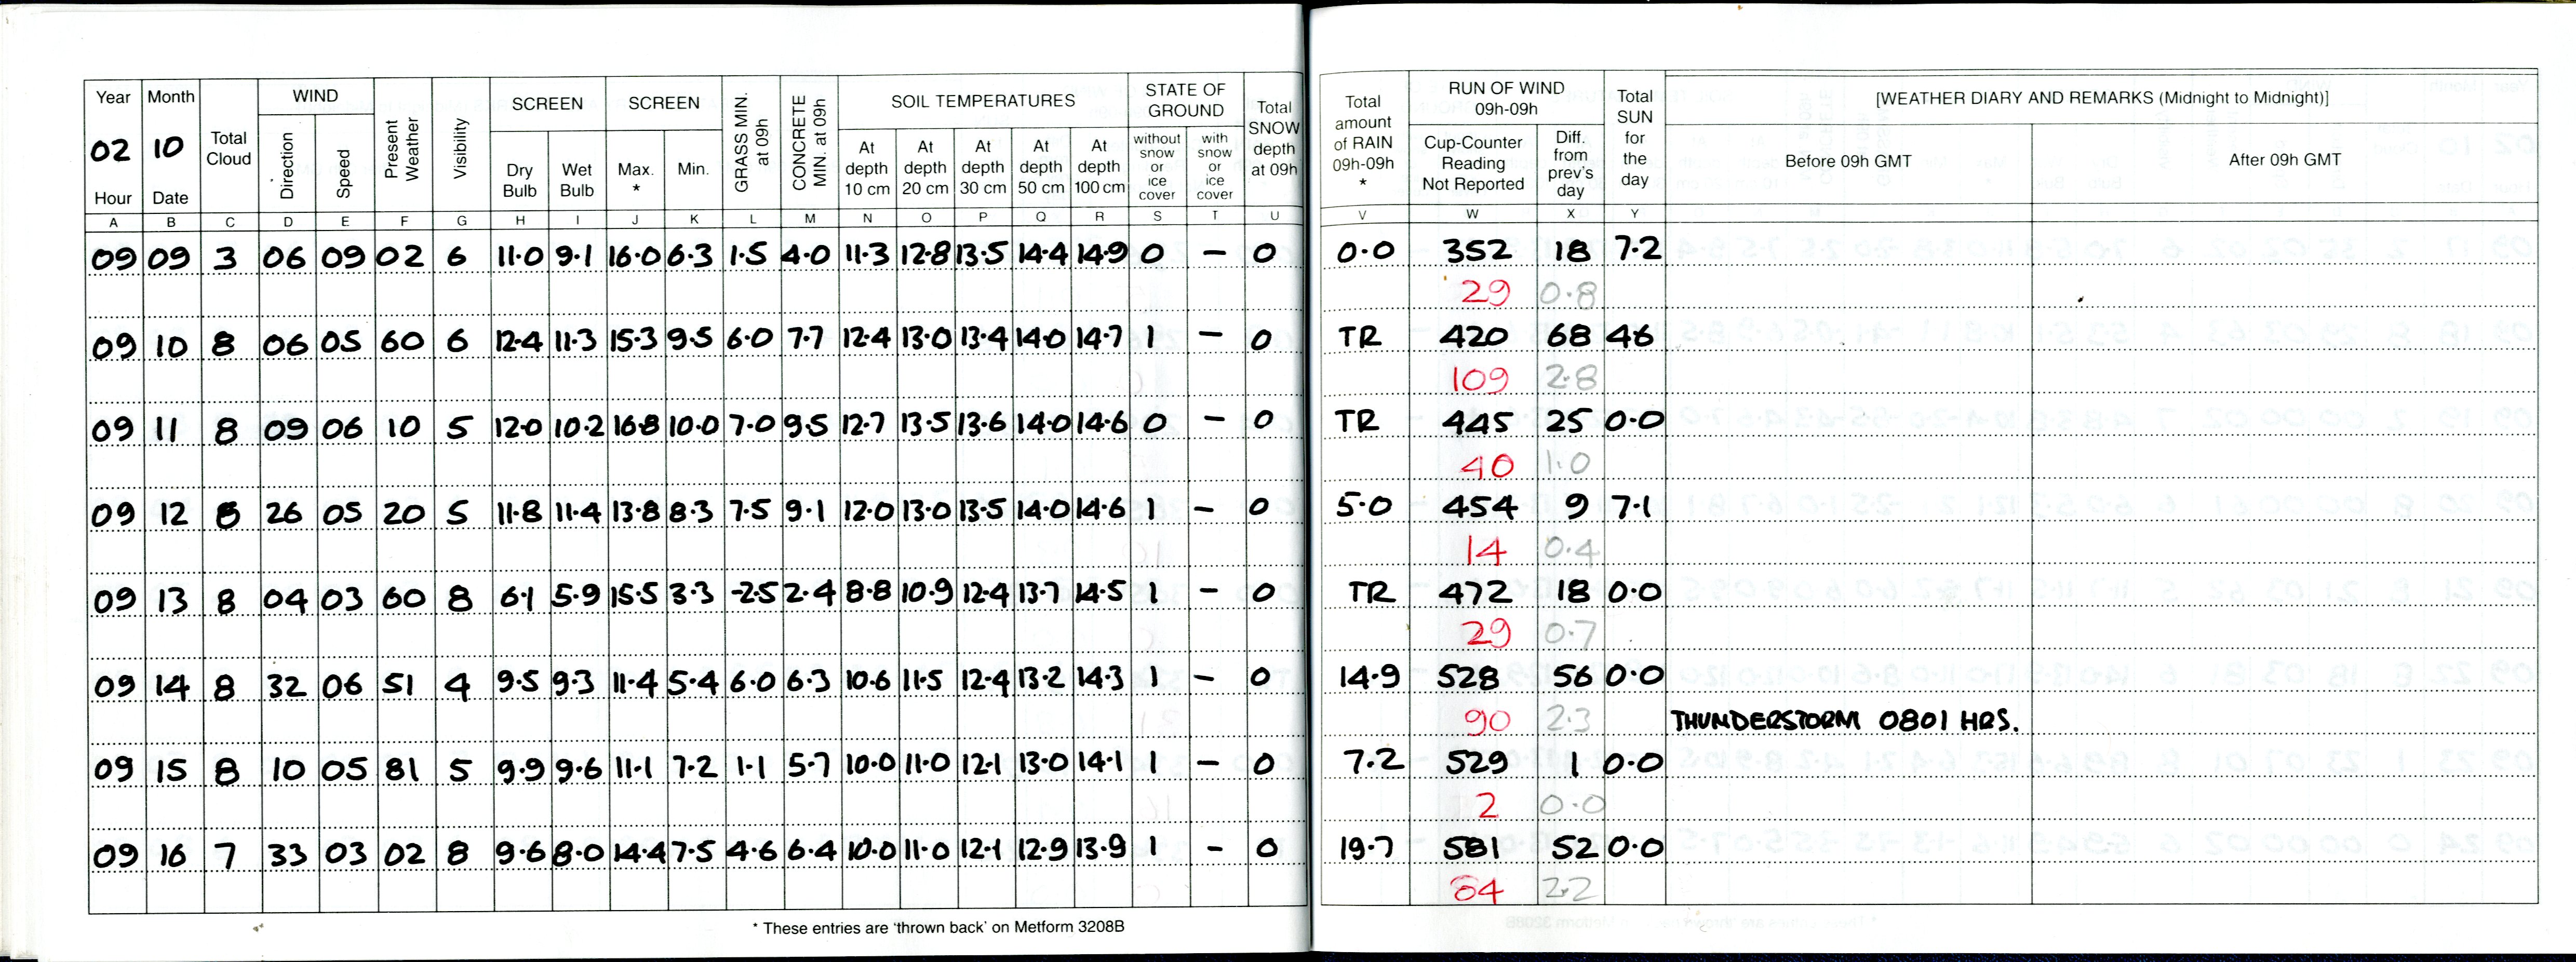 Year Month Total Cloud WIND Present Weather Visibility SCREEN SCREEN GRASS MIN. at 09h CONCRETE MIN. at 09h SOIL TEMPERATURES STATE OF GROUND Total SNOW depth at 09h Total amount of RAIN 09h-09h * RUN OF WIND 09h-09h Total SUN for the day [WEATHER DIARY AND REMARKS (Midnight to Midnight)]
02 10 Direction Speed Dry Bulb Wet Bulb Max. * Min. At depth 10 cm At depth 20 cm At depth 30 cm At depth 50 cm At depth 100 cm without snow or ice cover with snow or ice cover Cup-Counter Reading Not Reported Diff. from prev's day Before 09h GMT After 09h GMT
Hour Date
A B C D E F G H I J K L M N O P Q R S T U V W X Y
09 09 3 06 09 02 6 11.0 9.1 16.0 6.3 1.5 4.0 11.3 12.8 13.5 14.4 14.9 0 – 0 0.0 352 18 7.2
29 0.8
09 10 8 06 05 60 6 12.4 11.3 15.3 9.5 6.0 7.7 12.4 13.0 13.4 14.0 14.7 1 – 0 TR 420 68 46
109 2.8
09 11 8 09 06 10 5 12.0 10.2 16.8 10.0 7.0 9.5 12.7 13.5 13.6 14.0 14.6 0 – 0 TR 445 25 0.0
40 1.0
09 12 8 26 05 20 5 11.8 11.4 13.8 8.3 7.5 9.1 12.0 13.0 13.5 14.0 14.6 1 – 0 5.0 454 9 7.1
14 0.4
09 13 8 04 03 60 8 6.1 5.9 15.5 3.3 -2.5 2.4 8.8 10.9 12.4 13.7 14.5 1 – 0 TR 472 18 0.0
29 0.7
09 14 8 32 06 51 4 9.5 9.3 11.4 5.4 6.0 6.3 10.6 11.5 12.4 13.2 14.3 1 – 0 14.9 528 56 0.0
90 2.3 THUNDERSTORM 0801 HRS.
09 15 8 10 05 81 5 9.9 9.6 11.1 7.2 1.1 5.7 10.0 11.0 12.1 13.0 14.1 1 – 0 7.2 529 1 0.0
2 0.0
09 16 7 33 03 02 8 9.6 8.0 14.4 7.5 4.6 6.4 10.0 11.0 12.1 12.9 13.9 1 – 0 19.7 581 52 0.0
84 2.2
* These entries are 'thrown back' on Metform 3208B